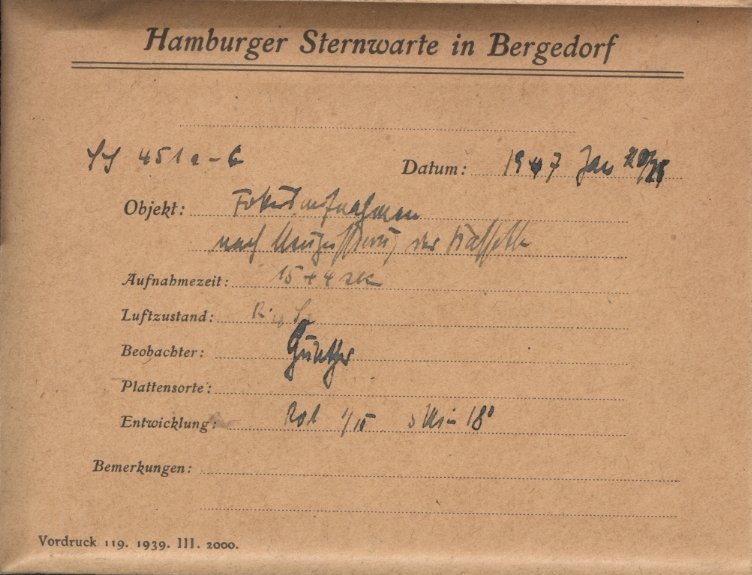 Hamburger Sternwarte in Bergedorf
451 a-c
Datum: 1947 Jan
Objekt: Fokusaufnahmen
nach der Kassette
Aufnahmezeit: 15 + 4 sec
Luftzustand:
Beobachter: Günther
Plattensorte:
Entwicklung: Rod 1/15 5 Min 18°
Bemerkungen:
Vordruck 119. 1939. III. 2000.